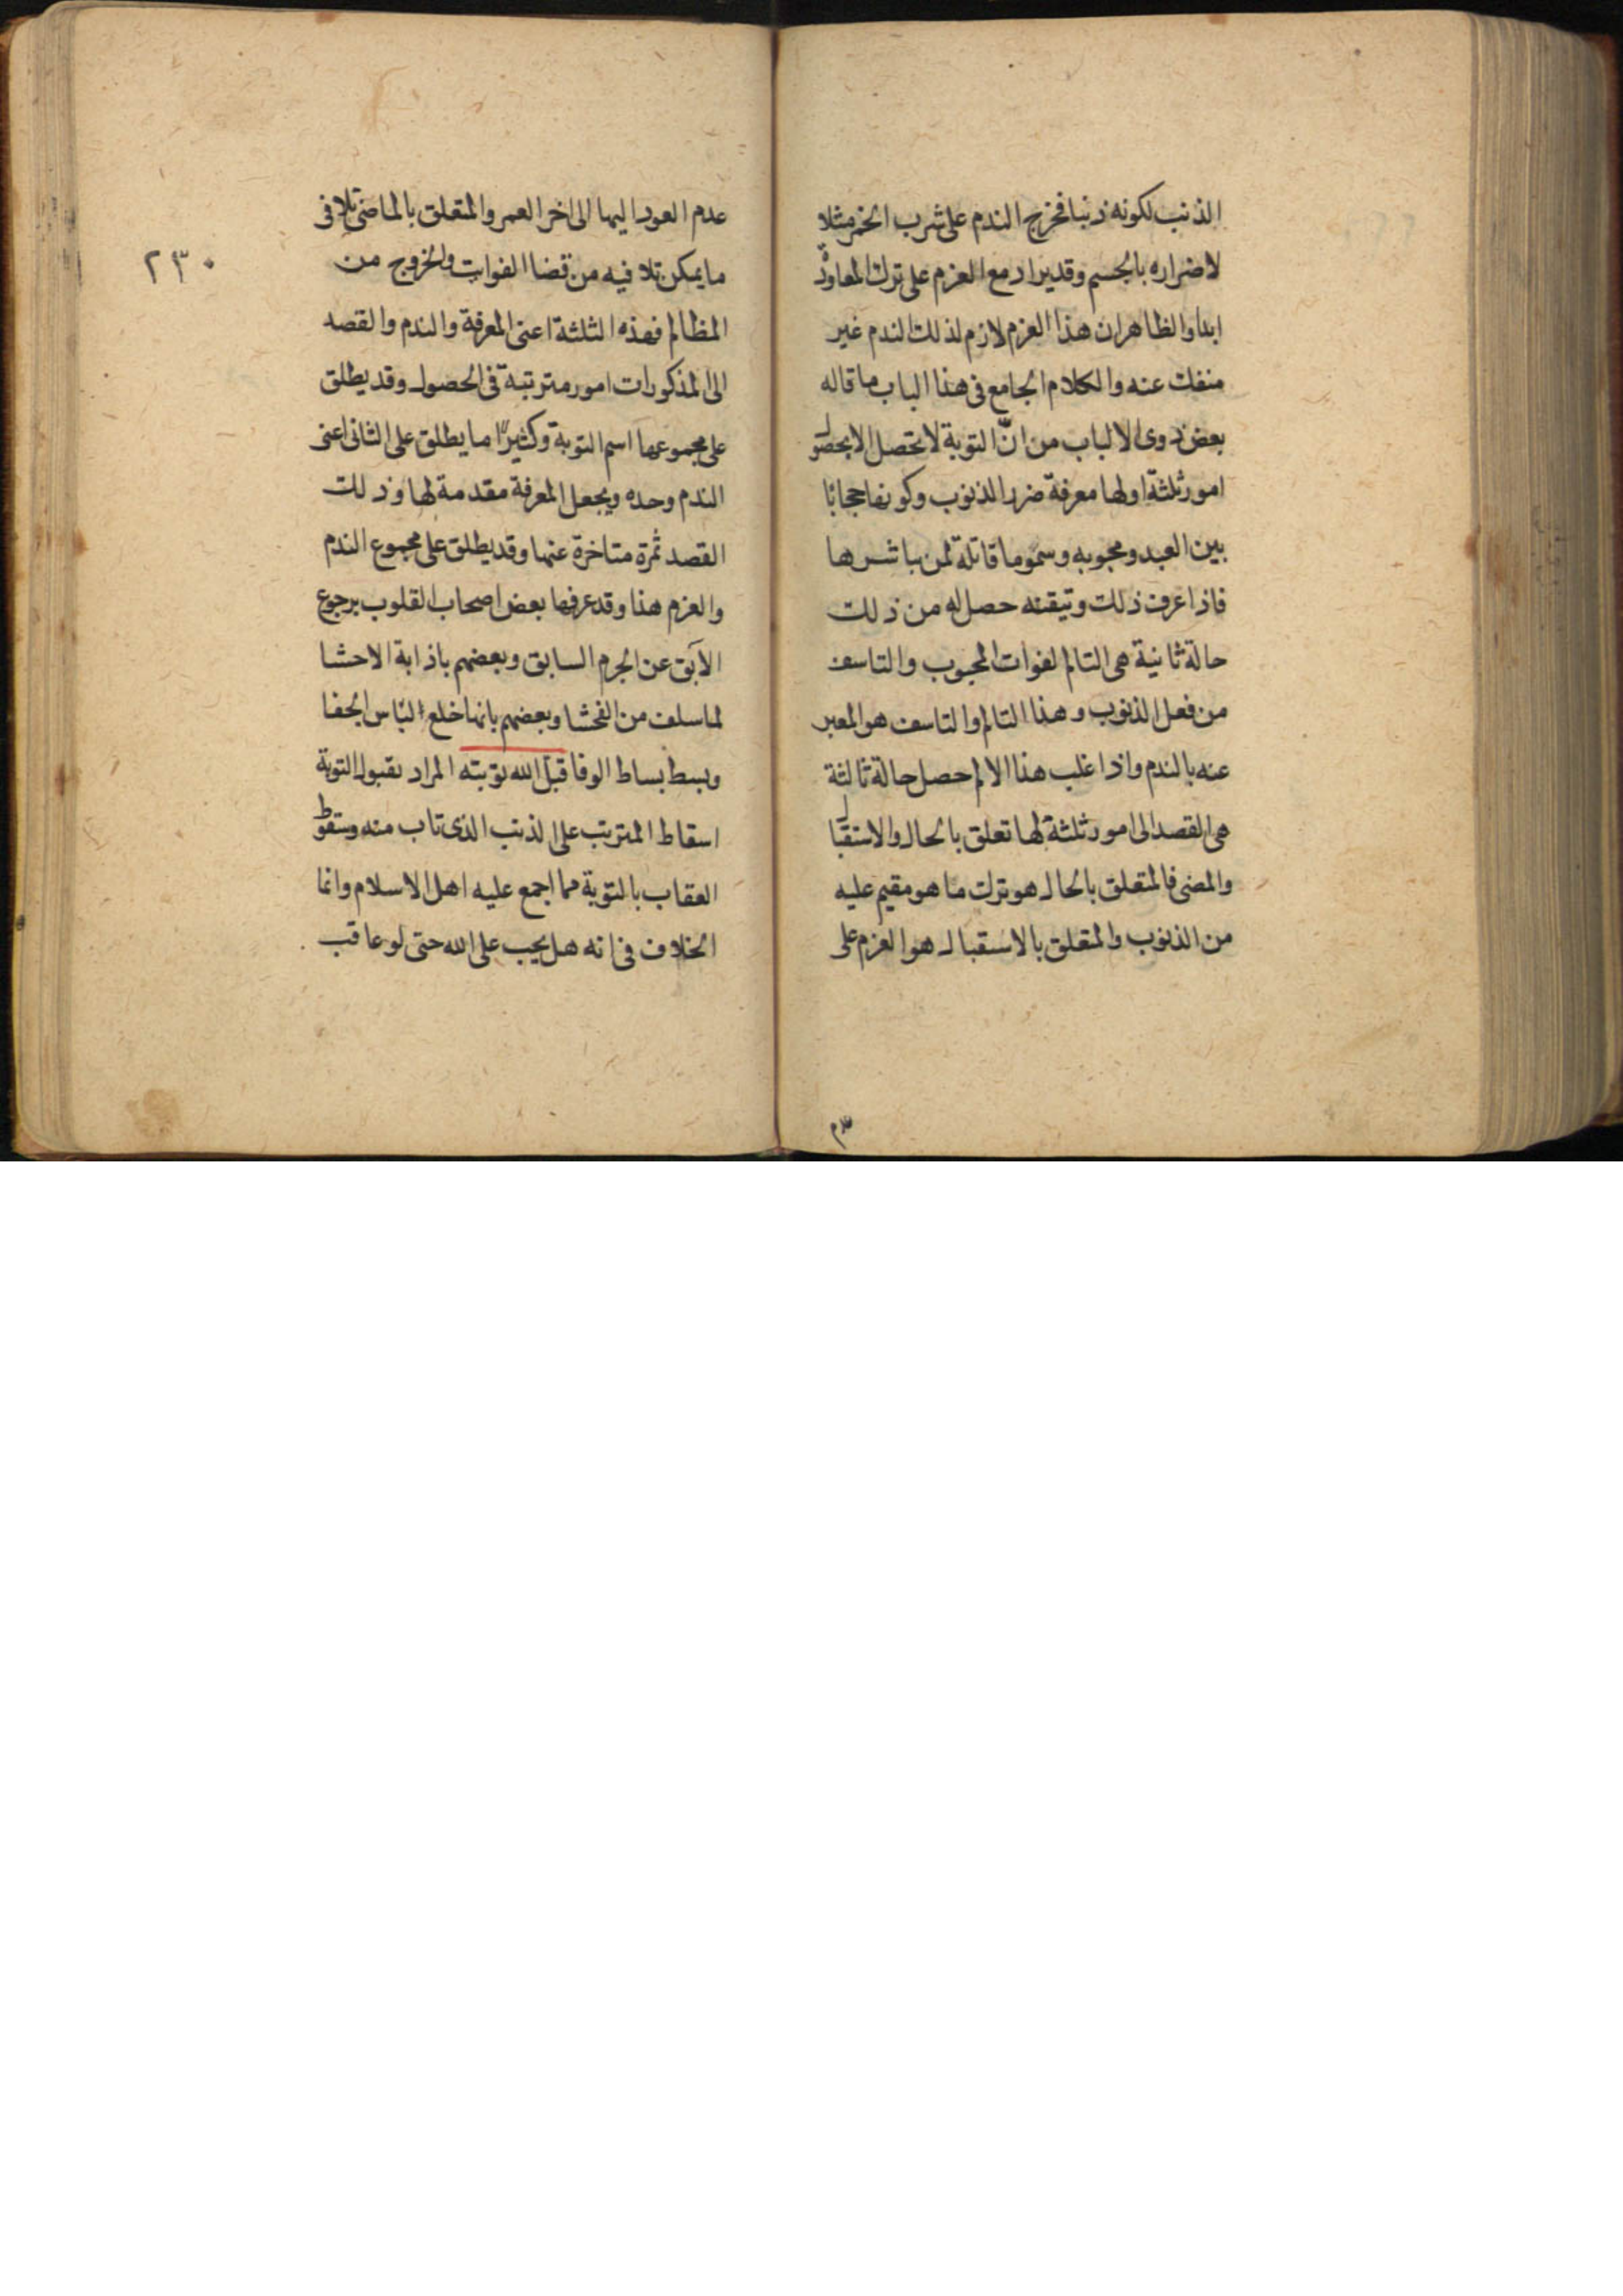 الذنب لكونه ذنبا فخرج الندم على شرب الخمر مثلا
لاضراره بالجسم وقد يراد مع العزم على ترك المعاودة
ابدا والظاهر ان هذا العزم لازم لذلك الندم غير
منفك عنه والكلام الجامع فى هذا الباب ما قاله
بعض ذوى الالباب من انّ التوبة لا تحصل الا بحصول
امور ثلثة اولها معرفة ضرر الذنوب وكونها حجابًا
بين العبد ومحبوبه وسموما قاتلة لمن باشرها
فاذا عرف ذلك وتيقنه حصل له من ذلك
حالة ثانية هى التالم لفوات المحبوب والتاسف
من فعل الذنوب وهذا التالم والتاسف هو المعبر
عنه بالندم واذا غلب هذا الالم حصل حالة ثالثة
هى القصد الى امور ثلثة لها تعلق بالحال والاستقبال
والمضى فالمتعلق بالحال هو ترك ما هو مقيم عليه
من الذنوب والمتعلق بالاستقبال هو العزم على
عدم العود اليها الى اخر العمر والمتعلق بالماضى تلافى
ما يمكن تلافيه من قضا الفوايت والخروج من
٢٣٠
المظالم فهذه الثلثة اعنى المعرفة والندم والقصد
الى المذكورات امور مترتبة فى الحصول وقد يطلق
على مجموعها اسم التوبة وكثيرًا ما يطلق على الثانى اعنى
الندم وحده ويجعل المعرفة مقدمة لها وذلك
القصد ثمرة متاخرة عنها وقد يطلق على مجموع الندم
والعزم هذا وقد عرفها بعض اصحاب القلوب برجوع
الآبق عن الجرم السابق وبعضهم باذابة الاحشا
لما سلف من الفحشا وبعضهم بانها خلع لباس الجفا
وبسط بساط الوفا قبل الله توبته المراد بقبول التوبة
اسقاط المترتب على الذنب الذى تاب منه وسقوط
العقاب بالتوبة مما اجمع عليه اهل الاسلام وانما
الخلاف فى انه هل يجب على الله حتى لو عاقب